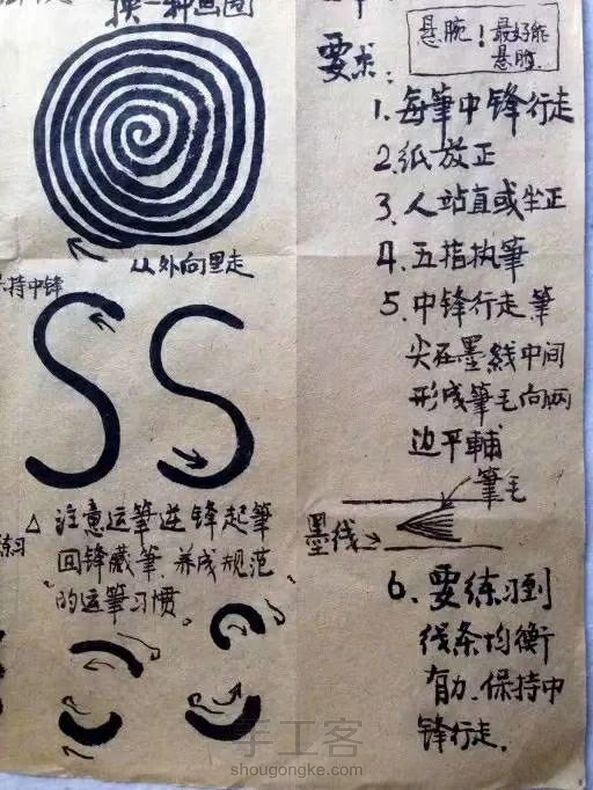 换一种画圈
从外向里走
持中锋
SS
△ 注意运筆逆锋起筆
练习
回锋藏筆.养成规范
的运筆习惯。
悬腕！最好能
悬
要求：
1.每筆中锋行走
2.纸放正
3.人站直或坐正
4.五指执筆
5.中锋行走.筆
尖在墨線中间
形成筆毛向两
边平輔
筆毛
墨线
6.要练习到
线条均衡
有力.保持中
锋行走.
手工客
shougongke.com